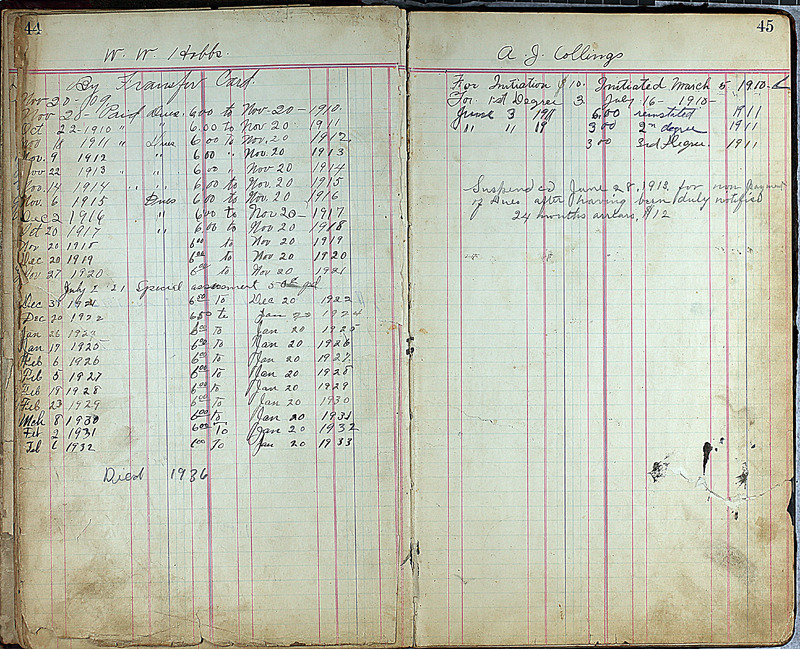 44
W. W. Hobbs.
By Transfer Card
Nov-20-09
Nov-28- Paid Dues. 6.00 to Nov-20-1910.
Oct 22-1910 " " 6.00 to Nov 20 1911
1911 " Dues 6.00 to Nov. 20 1912
Nov. 9 1912 6 00 " Nov. 20 1913
Nov 22 1913 " 6.00 " Nov 20 1914
Nov. 14 1914 " " 6.00 to Nov. 20 1915
Nov. 6 1915 Dues 6.00 to Nov 20 1916
Dec 2 1916 " 6.00 to Nov 20- 1917
Oct 20 1917 " 6.00 to Nov 20 1918
Nov 20 1918 6 00 to Nov 20 1919
Dec 20 1919 6 00 to Nov 20 1920
Nov 27 1920 6 00 to Nov 20 1921
July 2 '21 Special assessment 50
Dec 31 1921 6 00 to Dec 20 1922
Dec 20 1922 6 00 to Jan 20 1924
Jan 26 1924 6 00 To Jan 20 1925
Jan 17 1925 6 00 To Jan 20 1926
Feb 6 1926 6 00 To Jan 20 1927
Feb 5 1927 6 00 To Jan 20 1928
Feb 18 1928 6 00 To Jan 20 1929
Feb 23 1929 6 00 To Jan 20 1930
Mch 8 1930 6 00 to Jan 20 1931
Feb 2 1931 6 00 To Jan 20 1932
Feb 6 1932 6 00 To Jan 20 1933
Died 1936
45
A. J. Collings
For Initiation $10. Initiated March 5 1910-
For 1st Degree 3 July 16-1910-
June 3 1911 6.00 reinstated 1911
" " 19 3 00 2nd degree 1911
3 00 3rd Degree. 1911
Suspended June 28. 1913 for non payment
of Dues after having been duly notified
24 months arrears. $12